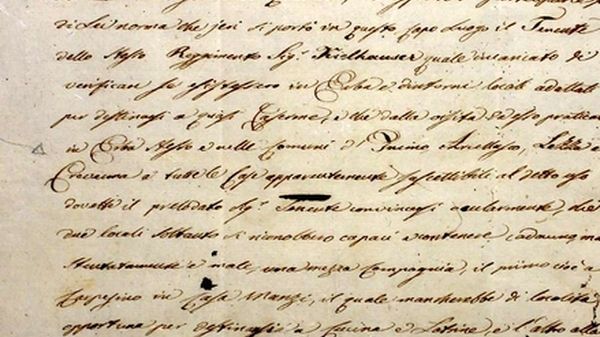 di Lei norma che jeri si portò in questo Capo Luogo il Tenente
dello stesso Reggimento Sig.r Kielhauser quale incaricato di
verificare se esistessero in Erba e dintorni locali adattati
per destinarsi a quasi Caserme, e che dalla visita adesso praticata
in Erba stesso e nelle Comuni d' Incino Arcellasco, Lezza e
Crevenna a tutte le Case apparentemente suscettibili al detto uso
dovette il prelodato Sig.r Tenente convincersi oculermente, che
due locali soltanto si riconobbero capaci a contenere cadauno, ma
stentatamente e male, una mezza Compagnia, il primo cioè a
in Casa Manzi, il quale mancherebbe di località
opportuna per destinarsi a Cucina e Latrine, e l'altro alla